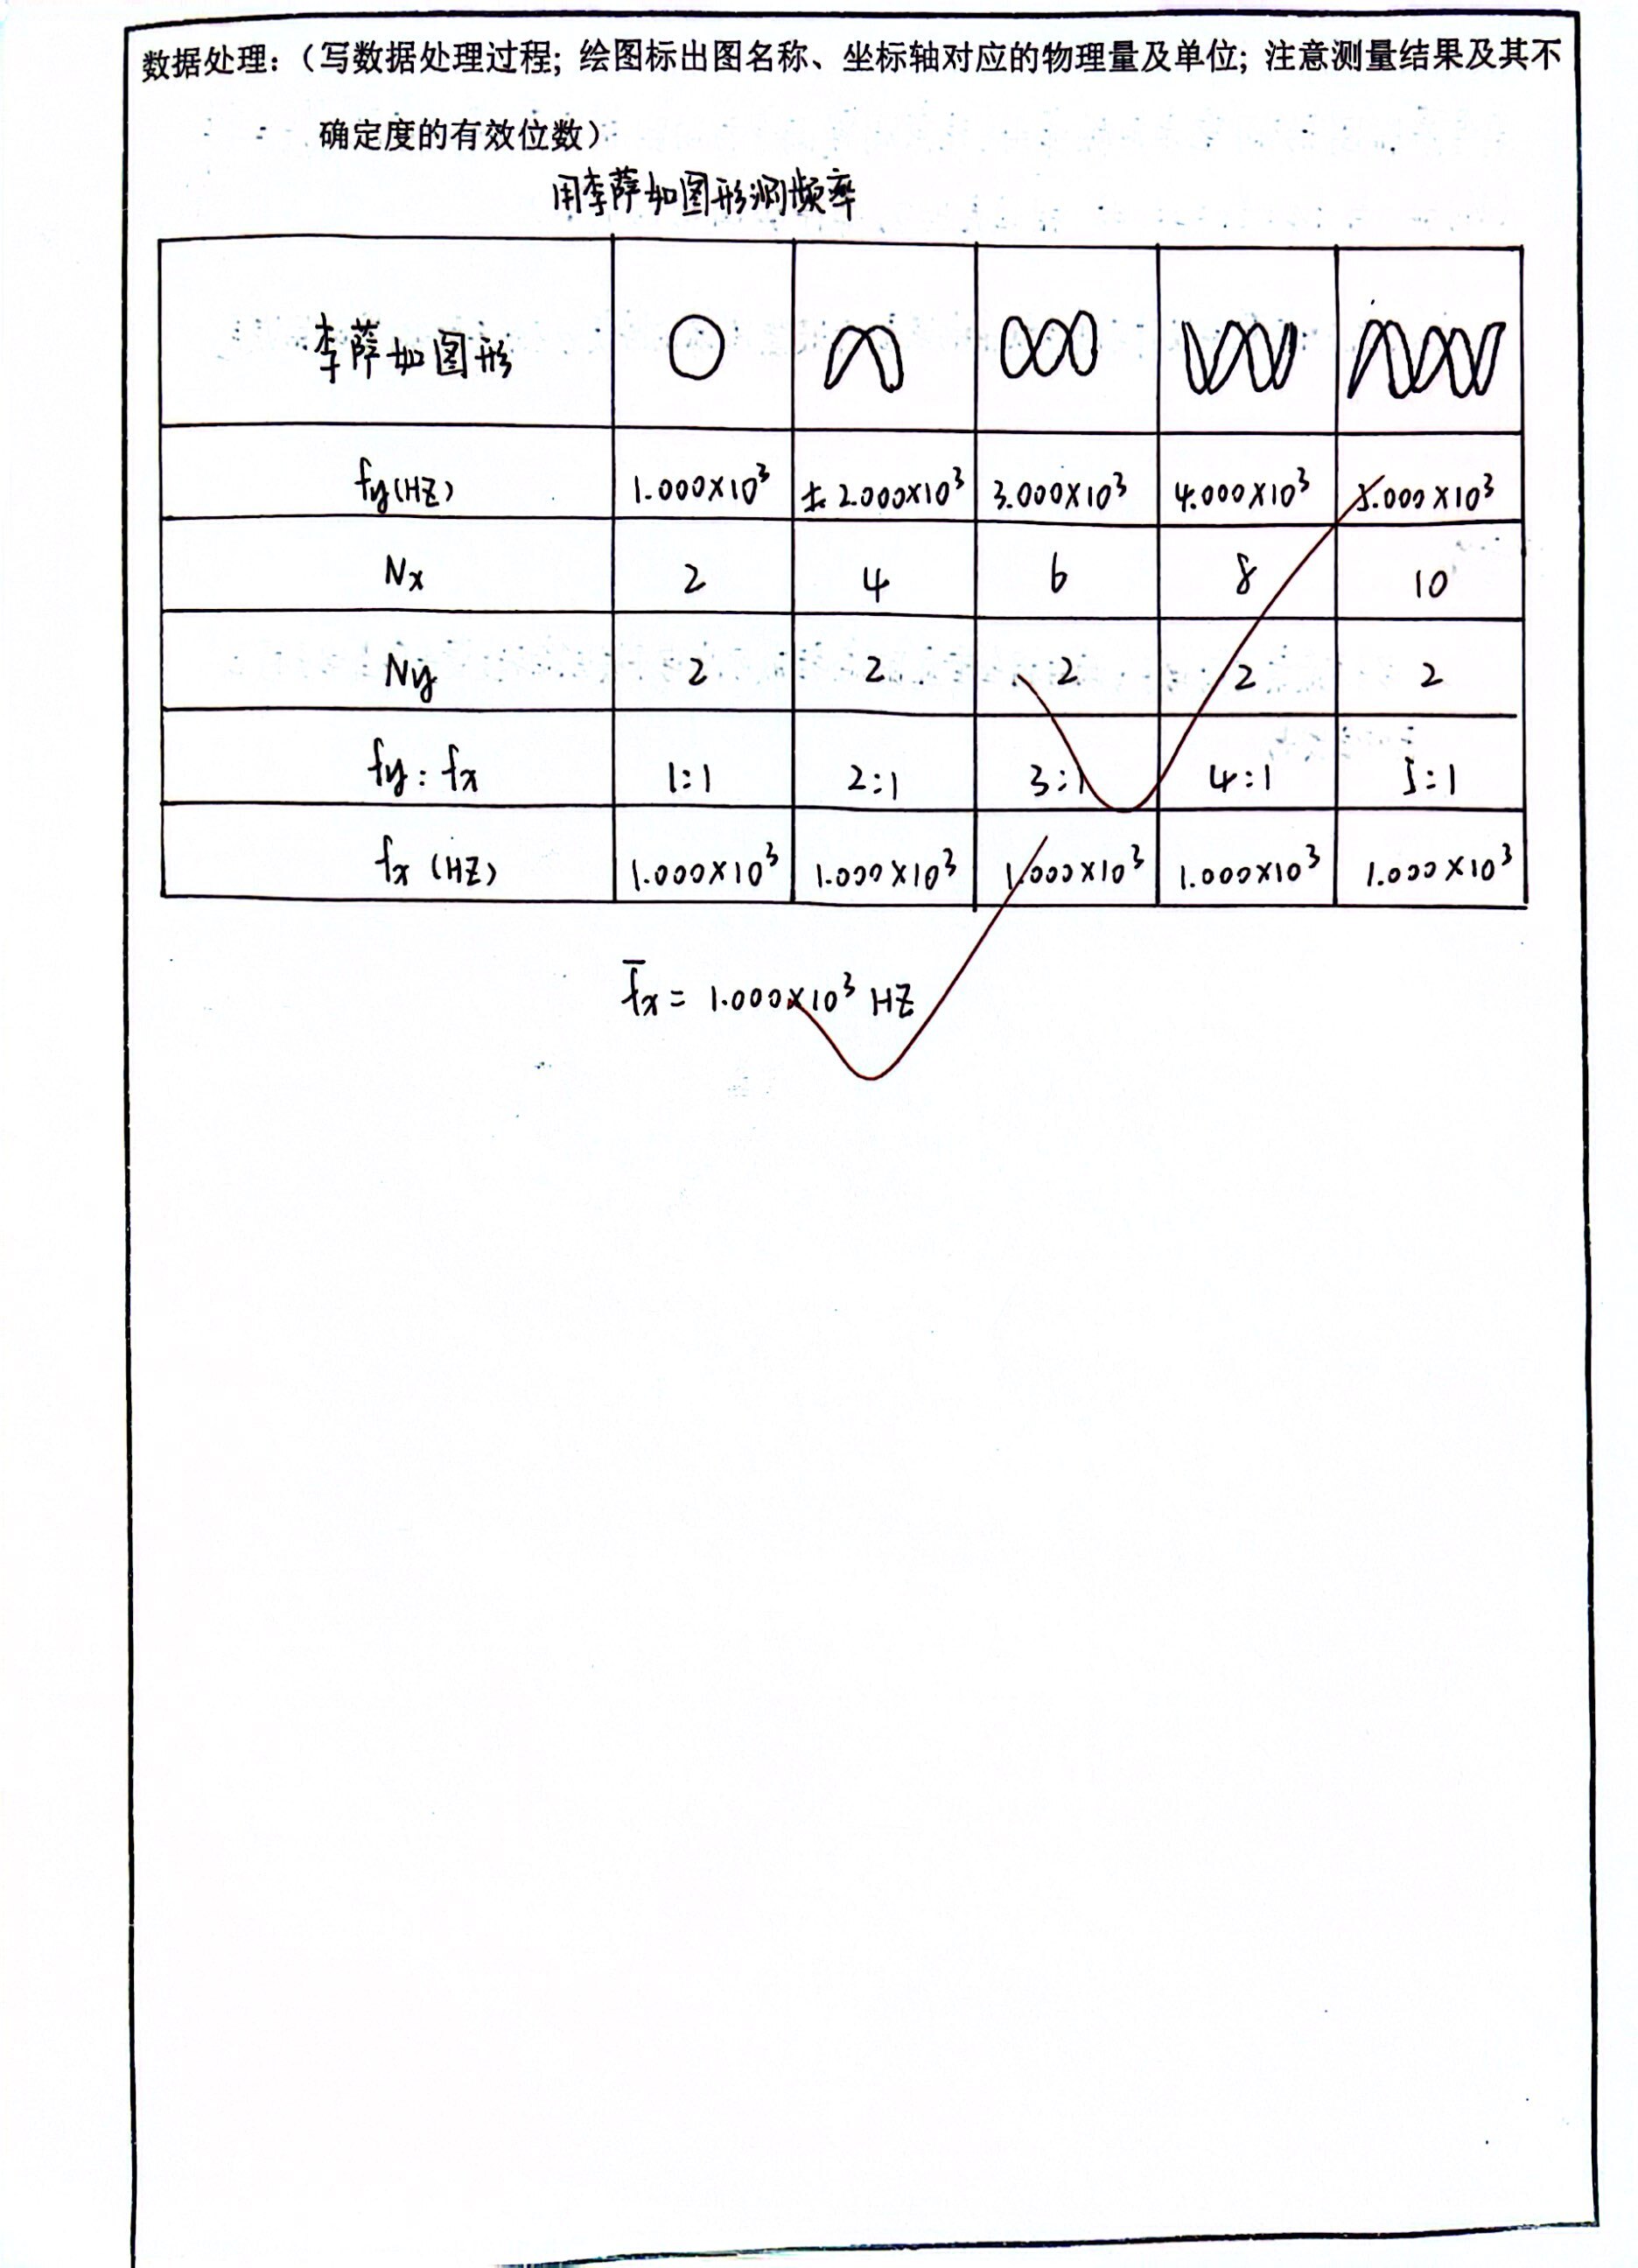 数据处理：（写数据处理过程；绘图标出图名称、坐标轴对应的物理量及单位；注意测量结果及其不
确定度的有效位数）
用李萨如图形测频率
李萨如图形
fy(HZ) 1.000×10³ 2.000×10³ 3.000×10³ 4.000×10³ 5.000×10³
Nx 2 4 6 8 10
Ny 2 2 2 2 2
fy : fx 1:1 2:1 3:1 4:1 5:1
fx (HZ) 1.000×10³ 1.000×10³ 1.000×10³ 1.000×10³ 1.000×10³
f̄x = 1.000×10³ HZ